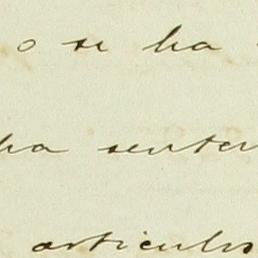 o se ha
ha senten
articulos